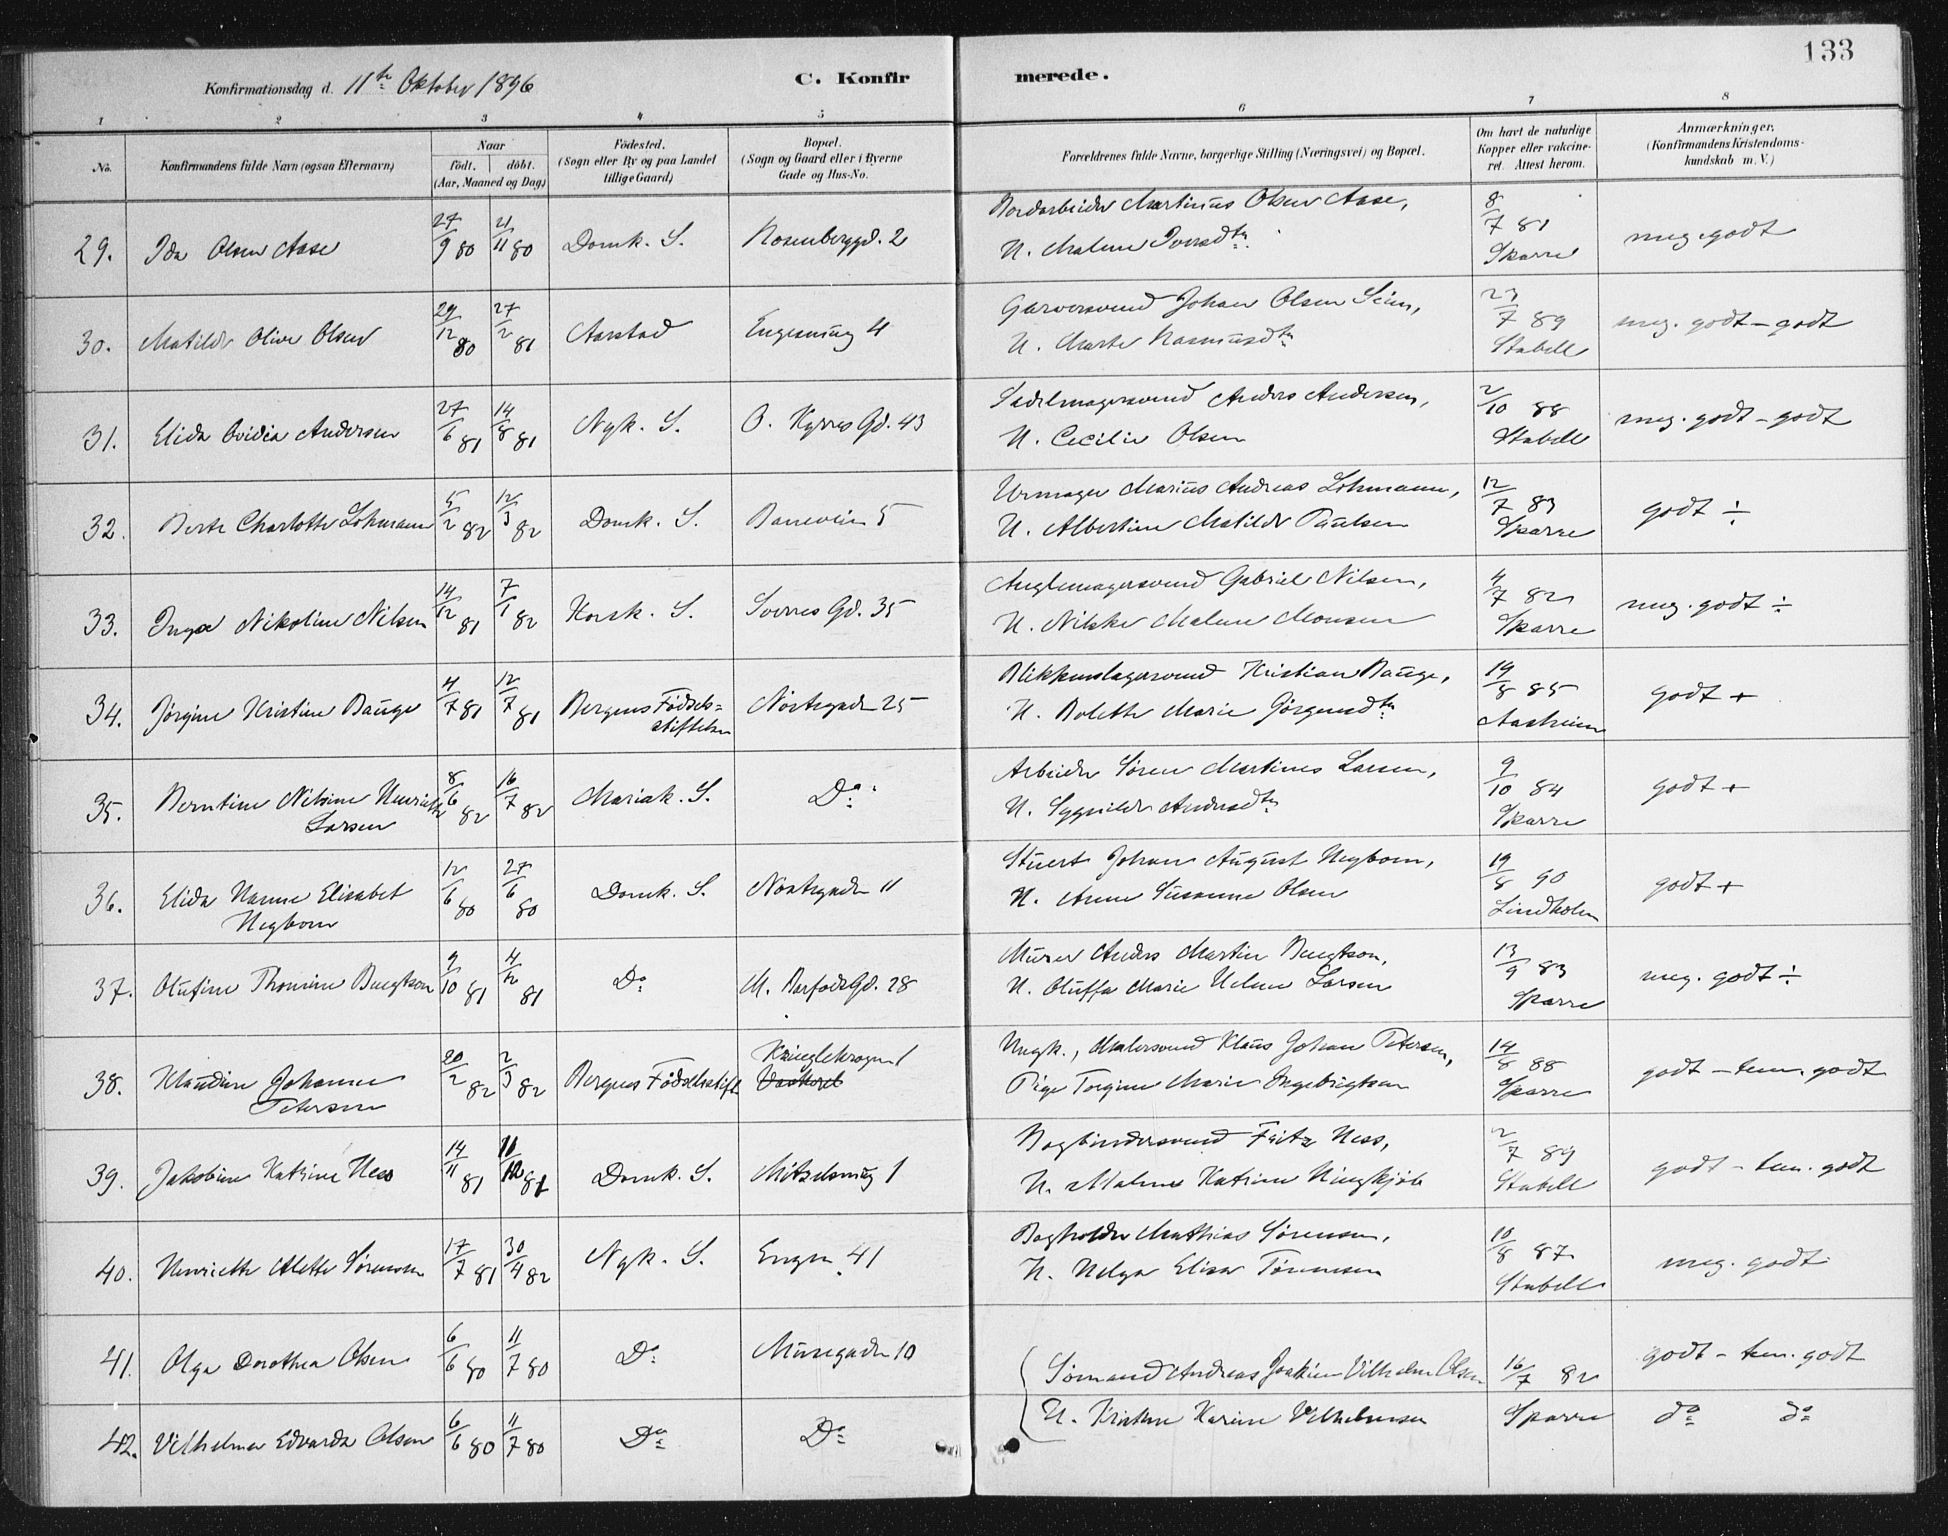 133
Konfirmationsdag d. 11te Oktober 1896
C. Konfirmerede.
1 2 3 4 5 6 7 8
No.
Konfirmandens fulde Navn (ogsaa Efternavn)
Naar
födt. döbt.
(Aar, Maaned og Dag)
Födested.
(Sogn eller By og paa Landet
tillige Gaard)
Bopæl.
(Sogn og Gaard eller i Byerne
Gade og Hus-No.
Forældrenes fulde Navne, borgerlige Stilling (Næringsvei) og Bopæl.
Om havt de naturlige
Kopper eller vakcine-
ret. Attest herom.
Anmærkninger.
(Konfirmandens Kristendoms-
kundskab m. V.)
29. Ida Olsen Aase 27/9 80 21/11 80 Domk. S. Rosenberggd. 2
Bordarbeider Martinus Olsen Aase,
H. Malene Iversdtr.
8/7 81
Sparre
meg. godt
30. Matilde Olive Olsen 29/12 80 27/2 81 Aarstad Engesmug 4
Garversvend Johan Olsen Seim,
H. Marte Rasmusdtr
23/7 89
Stabell
meg. godt - godt
31. Elida Ovidia Andersen 27/6 81 14/8 81 Nyk. S. O. Kyrres Gd. 43
Sadelmagersvend Anders Andersen,
H. Cecilie Olsen
2/10 88
Stabell
meg. godt - godt
32. Berte Charlotte Lohmann 5/2 82 12/3 82 Domk. S. Baneveien 5
Urmager Marius Andreas Lohmann,
H. Albertine Matilde Paulsen
12/7 83
Sparre
godt ÷
33. Inga Nikoline Nilsen 14/12 81 7/1 82 Korsk. S. Sverres Gd. 35
Gabriel Nilsen,
H. Malene Monsen
4/7 82
Sparre
meg. godt ÷
34. Jørgine Kristine Bauge 4/7 81 12/7 81 Bergens Födsels=
stiftelse
Nöstegaden 25
Blikkenslagersvend Kristian Bauge,
H. Bolette Marie Jörgensdtr
19/8 85
godt +
35. Berntine Nilsine Henriette
Larsen
8/6 82 16/7 82 Mariak. S. Do
Arbeider Sören Martines Larsen,
H. Andersdtr
9/10 84
Sparre
godt +
36. Elida Hanne Elisabet
Negbom
12/6 80 27/6 80 Domk. S. Nöstegaden 11
Stuert Johan August Negbom,
H. Anne Susanne Olsen
19/8 90
Lindholm
godt +
37. Olufine Thomine Bengtson 9/10 81 4/12 81 Do M. Barfods Gd. 28
Murer Anders Martin Bengtson,
H. Oluffa Marie Helene Larsen
13/9 83
Sparre
meg. godt ÷
38. Klaudine Johanne
Petersen
20/2 82 2/3 82 Bergens Födselsstift.
Kringlekrogen 1
Ungk., Malersvend Klaus Johan Petersen,
Pige Torgine Marie Ingebrigtsen
14/8 88
Sparre
godt - tem. godt
39. Jakobine Katrine Hess 14/11 81 11/12 81 Domk. S. Mitzelsmug 1
Bogbindersvend Fritz Hess,
H. Malene Katrine
2/7 89
Stabell
godt - tem. godt
40. Henriette Alette Sörensen 17/7 81 30/4 82 Nyk. S. Engen 41
Bogholder Mathias Sörensen,
H. Helga Elisa Tönnesen
10/8 87
Stabell
meg. godt
41. Olga Dorothea Olsen 6/6 80 11/7 80 Do Musegaden 10
Sömand Andreas Joakim Vilhelm Olsen
16/7 82
godt - tem. godt
42. Vilhelmea Edvarda Olsen 6/6 80 11/7 80 Do Do
H. Kristine Karine Vilhelmsen
Sparre
do do